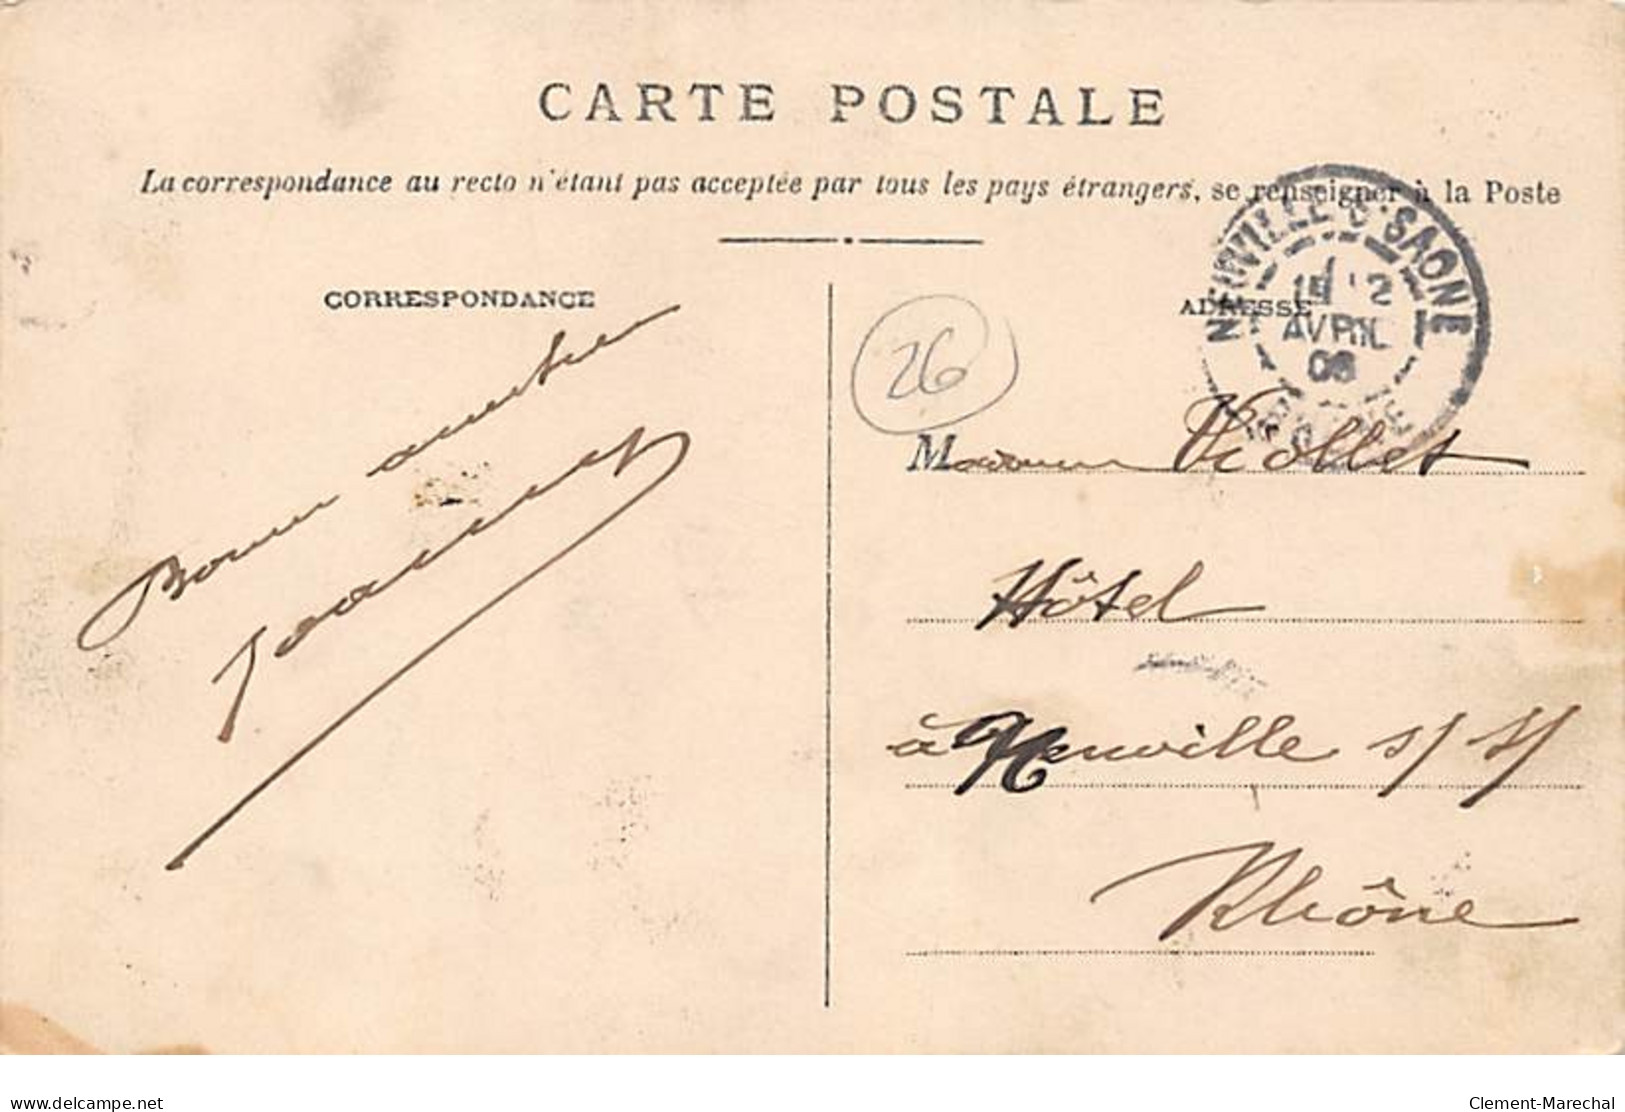 CARTE POSTALE
La correspondance au recto n'étant pas acceptée par tous les pays étrangers, se renseigner à la Poste
CORRESPONDANCE
ADRESSE
NEUVILLE-S-SAONE
AVRIL
26
Madame Viollet
Hôtel
à Neuville s/ S/
Rhône
Bonne
delcampe.net
Clement-Marechal